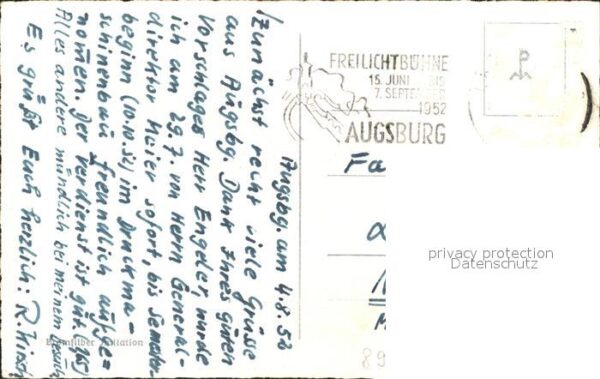 Augsbg. am 4.8.52
Zunächst recht viele Grüsse
aus Augsbg. Dank Ihres guten
Vorschlages Herr Engeler wurde
ich am 29.7. von Herrn General-
direktor Meier sofort, bis semester-
beginn (10.10.52) im Druckma-
schinenbau freundlich aufge=
nommen. Der Verdienst ist gut.
Alles andere mündlich bei meinem Besuch
Es grüßt Euch herzlich: R. Hirsch
FREILICHTBÜHNE
15. JUNI BIS
7. SEPTEMBER
1952
AUGSBURG
Fa
privacy protection
Datenschutz
89
Imitation